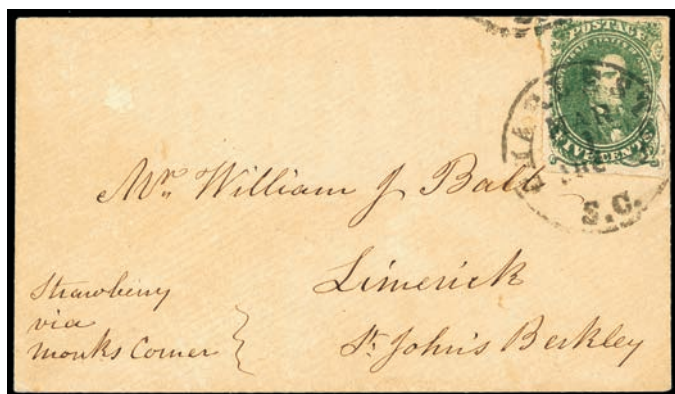 POSTAGE
FIVE CENTS
CHARLESTON
S.C.
Mr. William J Ball
Limerick
St. John's Berkley
Strawberry
via
Monks Corner